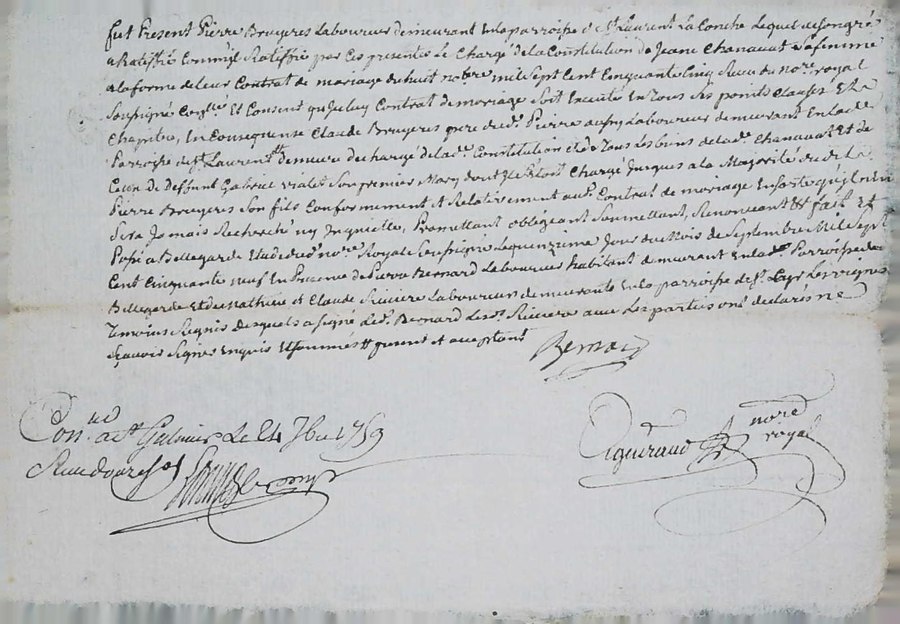 fut Present Pierre Bruyeres Laboureur demeurant En la parroisse de St Laurent La Conche Lequel de son gré
a Ratiffié comme Il Ratiffie par Ces presentes Le Chargé de la Constitution de Jeane Chanavat sa femme
a la forme de leur Contrat de mariage du huit nobre mil Sept Cent Cinquante Cinq Receu du nore royal
Soussigné Et Consent que led Contrat de mariage Soit Executé En tous Ses points Clauses Et
Chapitres, En Consequense Claude Bruyeres pere dud. Pierre aussy Laboureur demeurant En lad.
Parroisse de St Laurent demeure dechargé de lad. Constitution et de tous Les biens de lad. Chanavat et de
Ceux de Deffunt Gabriel vialet Son premier Mary dont Il s'Etoit Chargé Jusques a la Majorité dud.
Pierre Bruyeres Son fils Conformement Et Relativement aud. Contrat de mariage En sorte qu'il n'En
Sera Jamais Recherché ny Inquietté, Promettant obligeant Soumettant, Renonceant &t fait Et
Passé a Bellegarde Etude du nore Royal Soussigné Le quinzime Jour du Mois de Septembre Mil Sept
Cent Cinquante neuf En Presence de Pierre Bernard Laboureur habitant demeurant En lad. Parroisse de
Bellegarde Et de Mathieu et Claude Riviere Laboureurs demeurants En la parroisse de St
Temoins Requis Desquels a Signé Led. Bernard Les ds Riviere avec Les parties ont declarés ne
Sçavoir Signer Enquis Et Sommés
Bernard
Conlé a St Galmier Le 24 7bre 1759
Receu douze sols
nore
royal